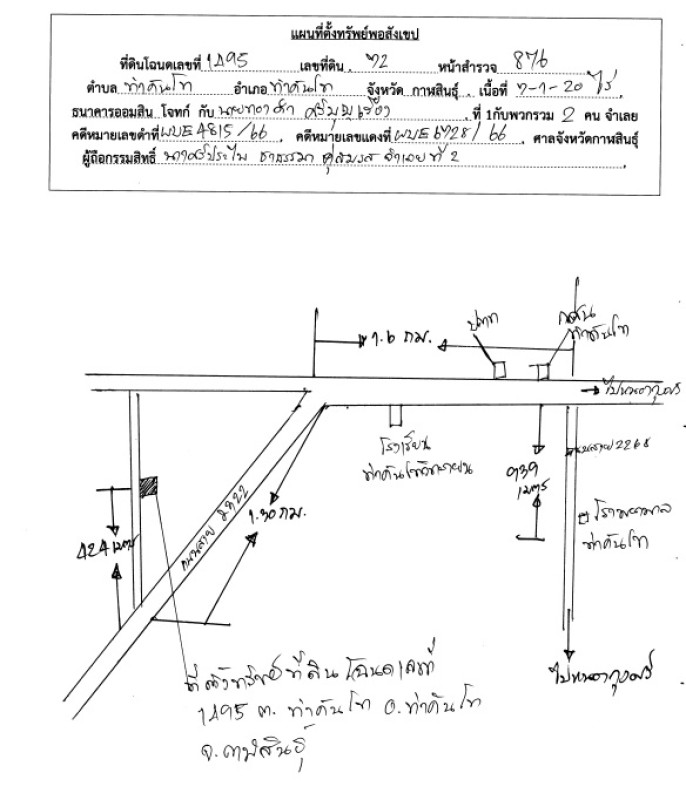 แผนที่ตั้งทรัพย์พอสังเขป
ที่ดินโฉนดเลขที่ 1495 เลขที่ดิน 72 หน้าสำรวจ 876
ตำบล ท่าคันโท อำเภอ ท่าคันโท จังหวัด กาฬสินธุ์ เนื้อที่ 7-1-20 ไร่
ธนาคารออมสิน โจทก์ กับ ที่ 1กับพวกรวม 2 คน จำเลย
คดีหมายเลขดำที่ ผบE4815/66 คดีหมายเลขแดงที่ ผบE6728/66 ศาลจังหวัดกาฬสินธุ์
ผู้ถือกรรมสิทธิ์ จำเลยที่ 2
1.6 กม.
ปตท
ท่าคันโท
ไปหนองกุงศรี
โรงเรียน
ท่าคันโทวิทยายน
939
เมตร
ถนนสาย 2268
โรงพยาบาล
ท่าคันโท
ถนนสาย 2322
1.30 กม.
424 เมตร
ไปหนองกุงศรี
ที่ตั้งทรัพย์ที่ดินโฉนดเลขที่
1495 ต. ท่าคันโท อ. ท่าคันโท
จ. กาฬสินธุ์